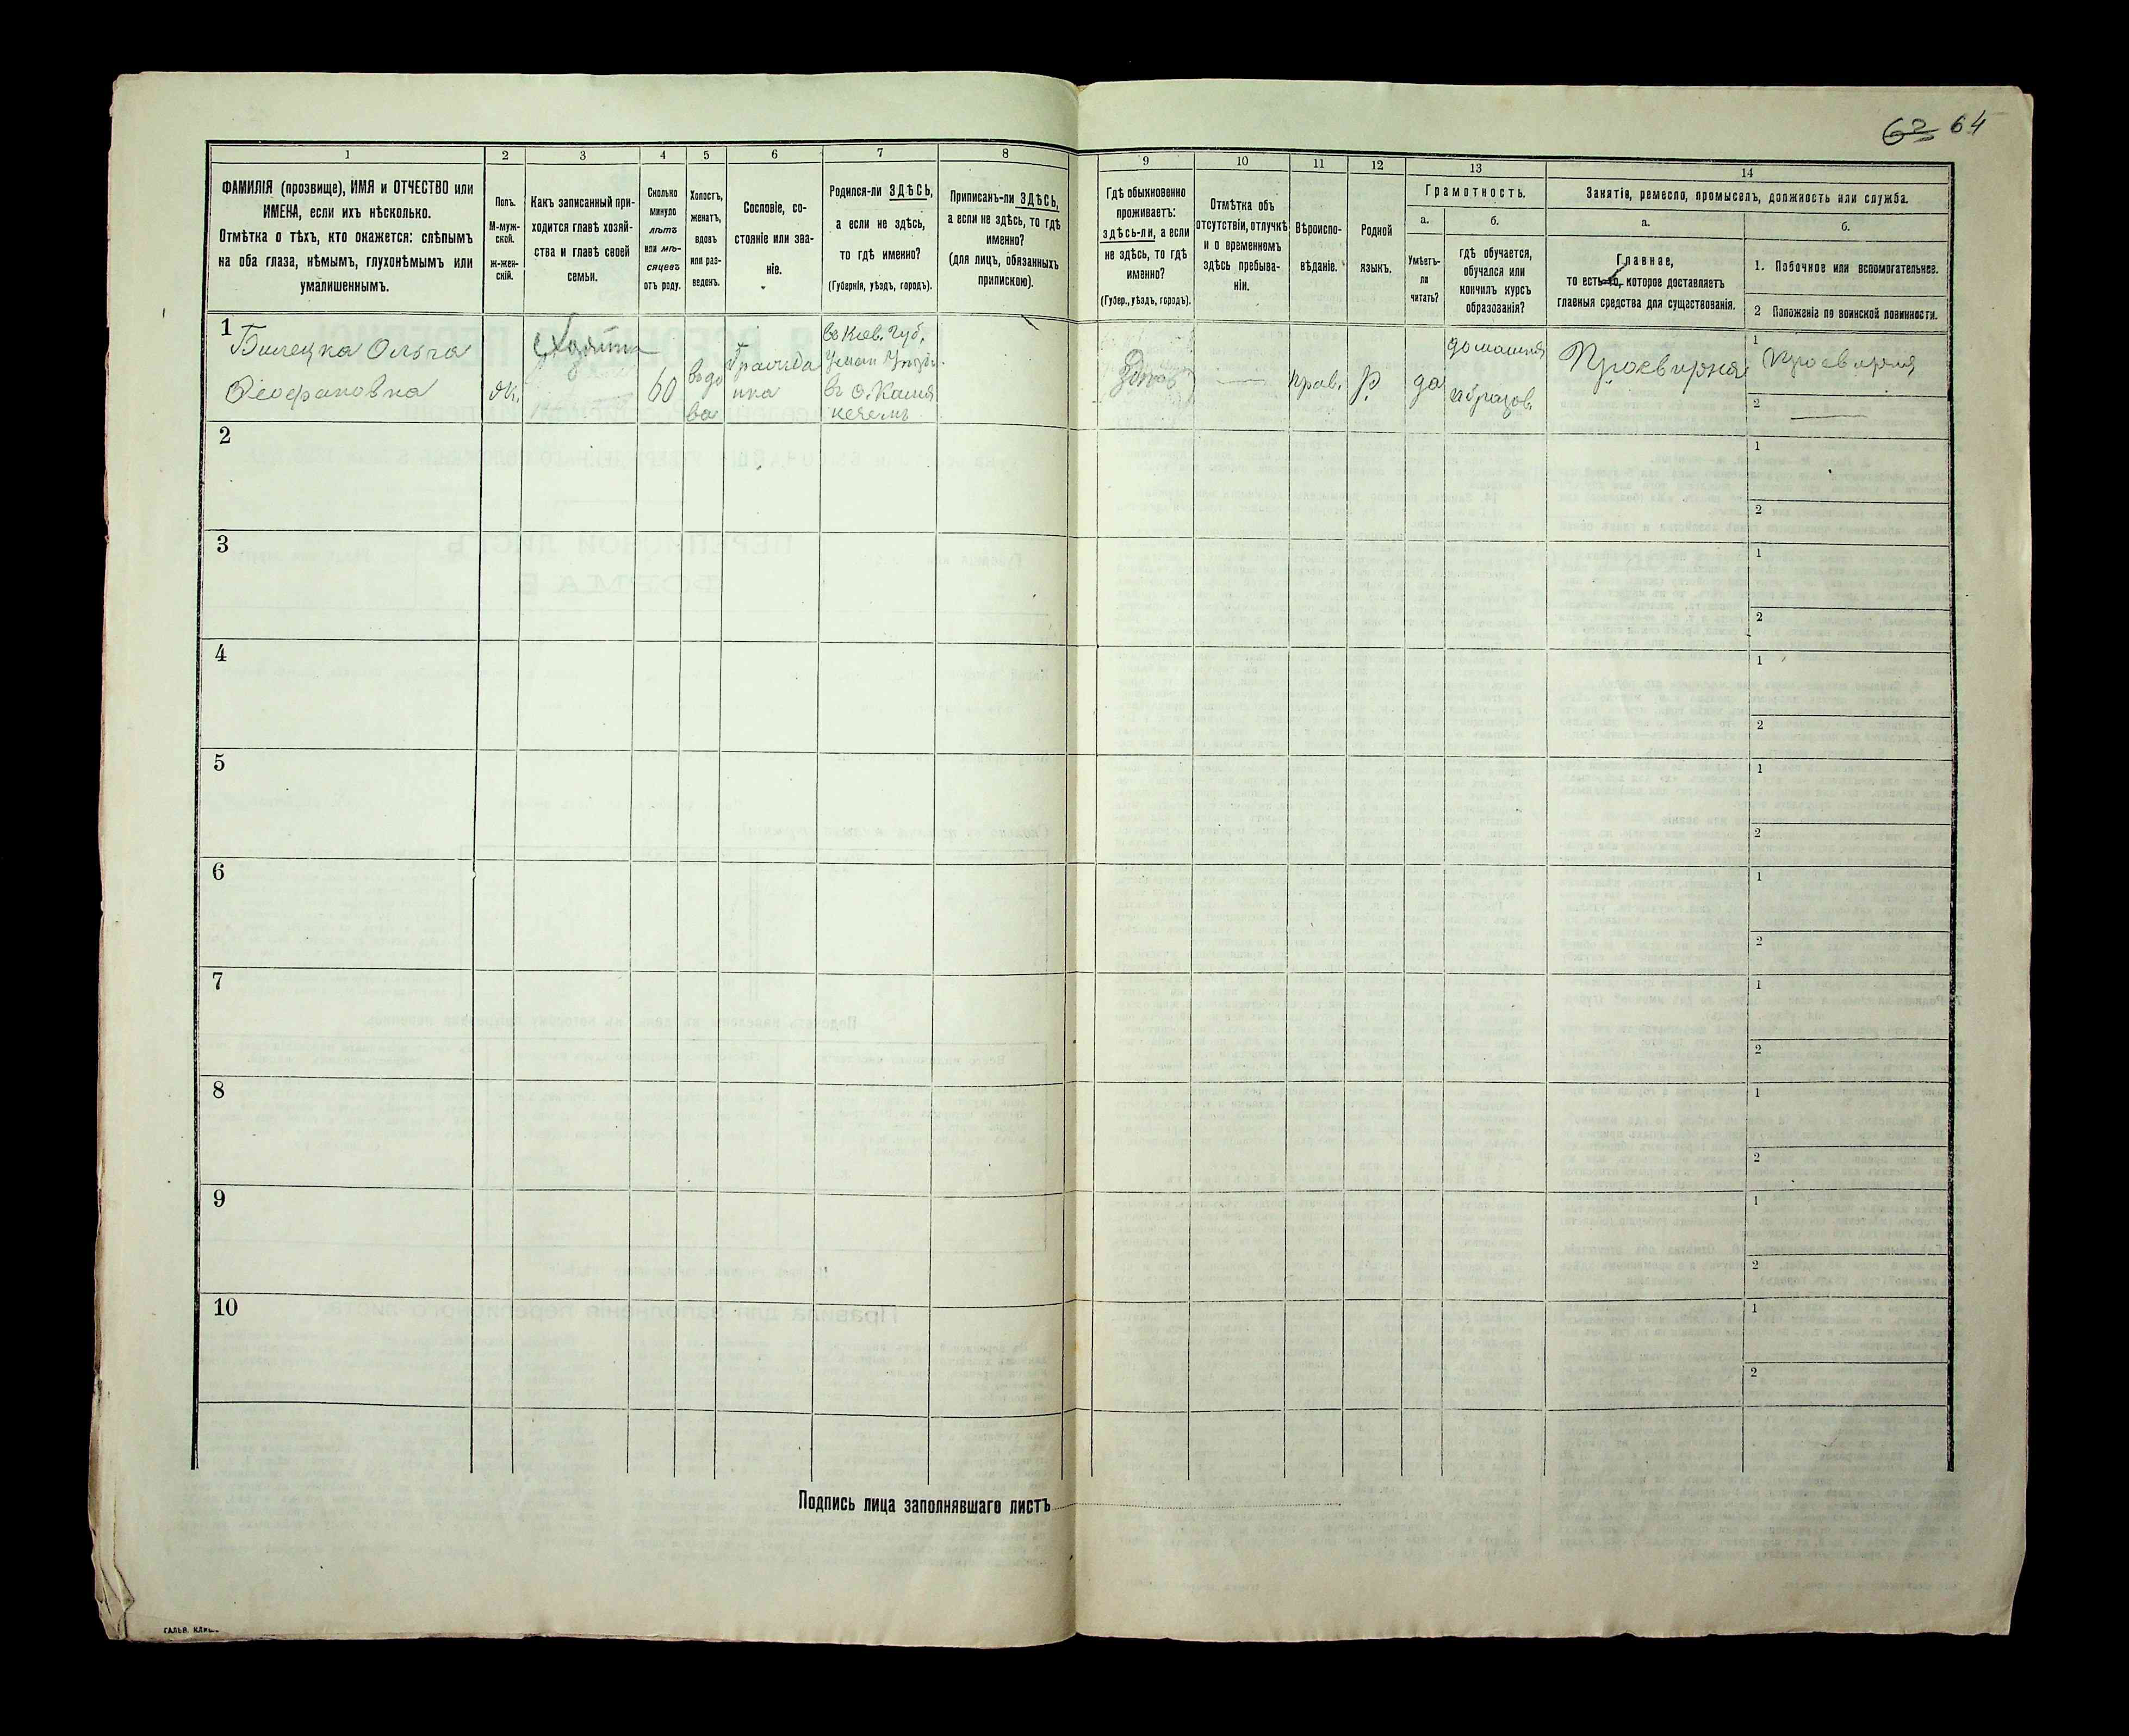 62 64
1 2 3 4 5 6 7 8 9 10 11 12 13 14
ФАМИЛІЯ (прозвище), ИМЯ и ОТЧЕСТВО или
ИМЕНА, если ихъ нѣсколько.
Отмѣтка о тѣхъ, кто окажется: слѣпымъ
на оба глаза, нѣмымъ, глухонѣмымъ или
умалишеннымъ.
Полъ.
М-муж-
ской.
ж-жен-
скій.
Какъ записанный при-
ходится главѣ хозяй-
ства и главѣ своей
семьи.
Сколько
минуло
лѣтъ
или мѣ-
сяцевъ
отъ роду.
Холостъ,
женатъ,
вдовъ
или раз-
веденъ.
Сословіе, со-
стояніе или зва-
ніе.
Родился-ли ЗДѢСЬ,
а если не здѣсь,
то гдѣ именно?
(Губернія, уѣздъ, городъ).
Приписанъ-ли ЗДѢСЬ,
а если не здѣсь, то гдѣ
именно?
(для лицъ, обязанныхъ
припискою).
Гдѣ обыкновенно
проживаетъ:
здѣсь-ли, а если
не здѣсь, то гдѣ
именно?
(Губер., уѣздъ, городъ).
Отмѣтка объ
отсутствіи, отлучкѣ
и о временномъ
здѣсь пребыва-
ніи.
Вѣроиспо-
вѣданіе.
Родной
языкъ.
Грамотность.
а.
Умѣетъ-
ли
читать?
б.
гдѣ обучается,
обучался или
кончилъ курсъ
образованія?
Занятіе, ремесло, промыселъ, должность или служба.
а.
Главное,
то есть то, которое доставляетъ
главныя средства для существованія.
б.
1. Побочное или вспомогательное.
2 Положеніе по воинской повинности.
1 Билецка Ольга
Ѳеофановна
ж.
60
вдо
ва
въ Кіев. Губ.
въ
прав.
Р.
да
домашня
образов.
Просвирня
1 Просвирня
2
2 1
2
3 1
2
4 1
2
5 1
2
6 1
2
7 1
2
8 1
2
9 1
2
10 1
2
Подпись лица заполнявшаго листъ